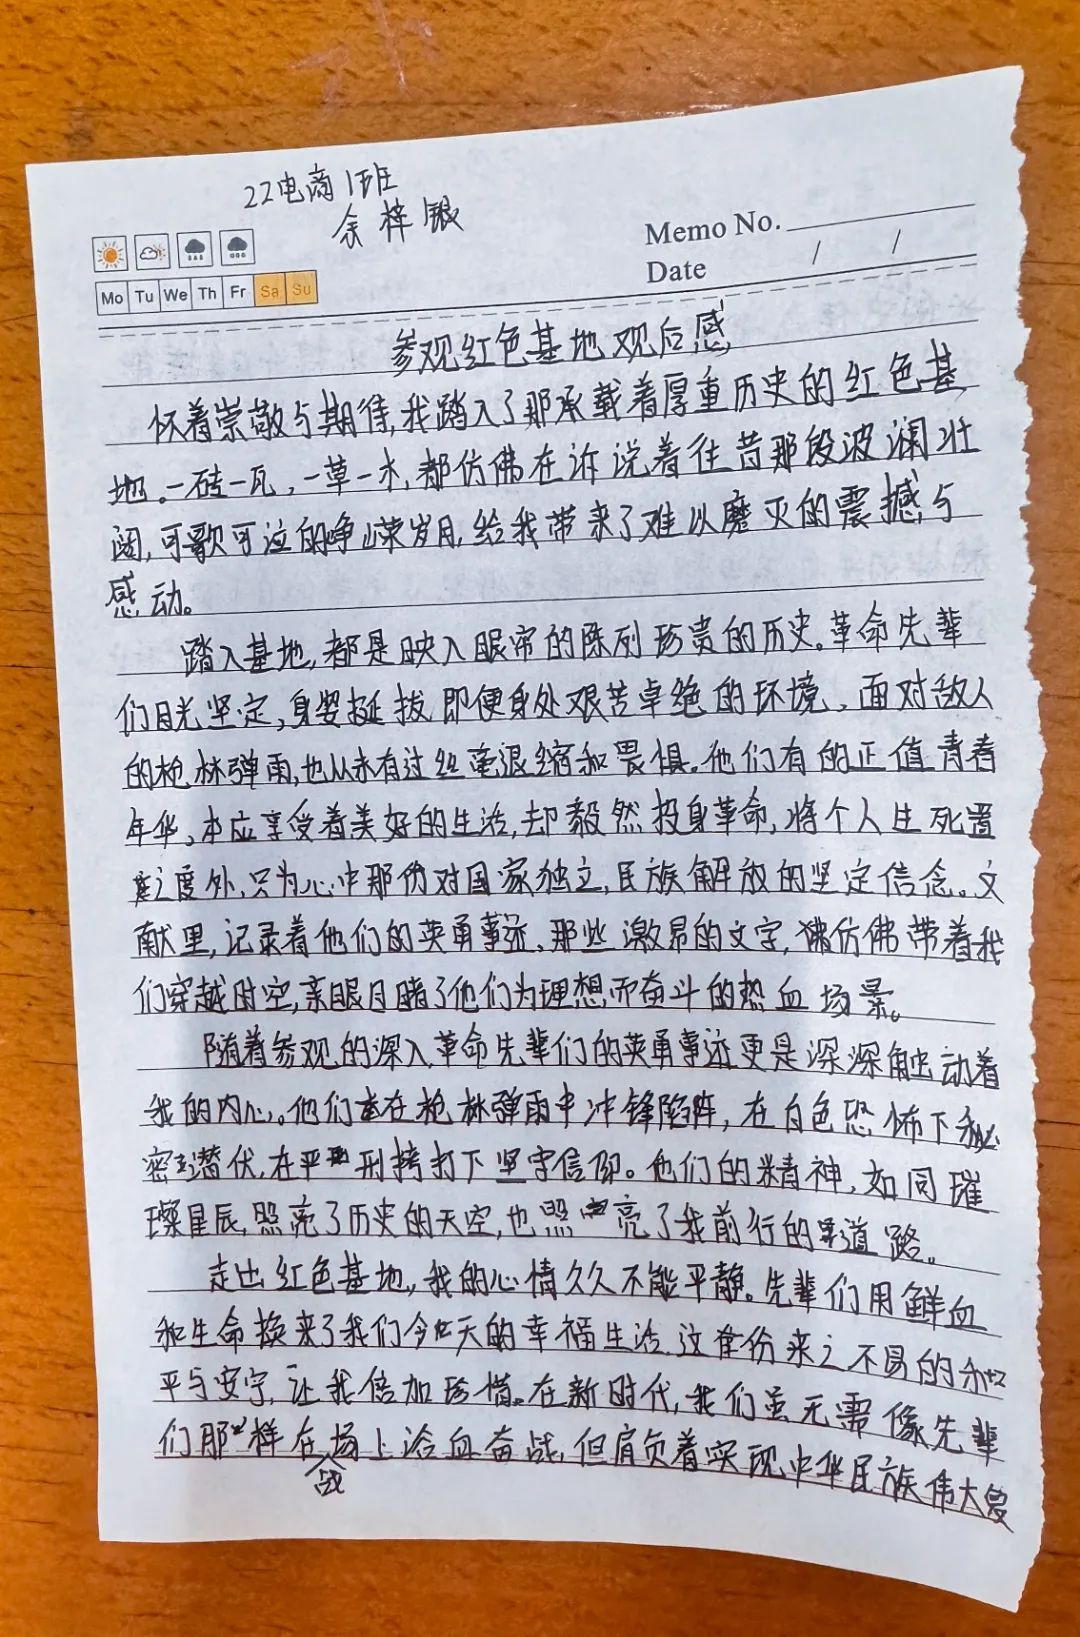 22电商1班
余梓银
Memo No.
Date / /
Mo Tu We Th Fr Sa Su
参观红色基地观后感
怀着崇敬与期待,我踏入了那承载着厚重历史的红色基
地。一砖一瓦,一草一木,都仿佛在诉说着往昔那段波澜壮
阔,可歌可泣的峥嵘岁月,给我带来了难以磨灭的震撼与
感动。
踏入基地,都是映入眼帘的陈列珍贵的历史。革命先辈
们目光坚定,身姿挺拔,即便身处艰苦卓绝的环境、面对敌人
的枪林弹雨,也从未有过丝毫退缩和畏惧。他们有的正值青春
年华、本应享受着美好的生活,却毅然投身革命,将个人生死置
之度外,只为心中那份对国家独立,民族解放的坚定信念。文
献里,记录着他们的英勇事迹、那些激昂的文字,仿佛带着我
们穿越时空,亲眼目睹了他们为理想而奋斗的热血场景。
随着参观的深入,革命先辈们的英勇事迹更是深深触动着
我的内心。他们在枪林弹雨中冲锋陷阵,在白色恐怖下秘
密潜伏,在严刑拷打下坚守信仰。他们的精神,如同璀
璨星辰,照亮了历史的天空,也照亮了我前行的道路。
走出红色基地,我的心情久久不能平静。先辈们用鲜血
和生命换来了我们今天的幸福生活,这份来之不易的和
平与安宁,让我倍加珍惜。在新时代,我们虽无需像先辈
们那样在战场上浴血奋战,但肩负着实现中华民族伟大复